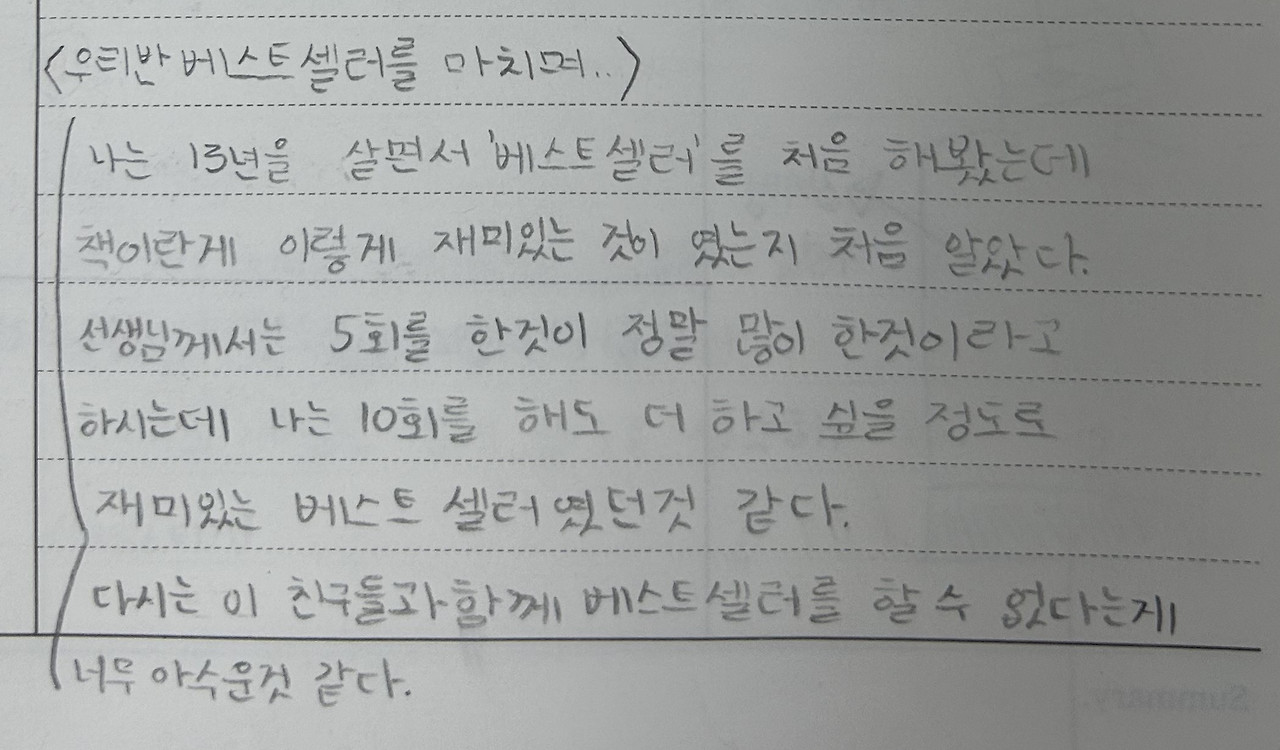 <우리반 베스트셀러를 마치며..>
나는 13년을 살면서 '베스트셀러'를 처음 해봤는데
책이란게 이렇게 재미있는 것이 였는지 처음 알았다.
선생님께서는 5회를 한것이 정말 많이 한것이라고
하시는데 나는 10회를 해도 더 하고 싶을 정도로
재미있는 베스트 셀러였던것 같다.
다시는 이 친구들과 함께 베스트셀러를 할 수 없다는게
너무 아쉬운것 같다.